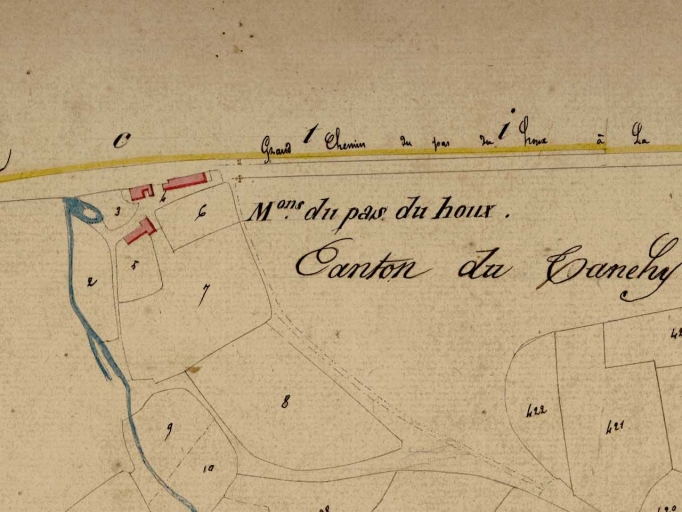 c t i
Grand Chemin du pas du houx à La
Mons. du pas du houx.
Canton du
3
4
6
2
5
7
8
9
10
422
421